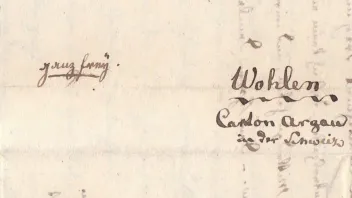 ganz frey.
Wohlen
Canton Argau
in der Schweiz